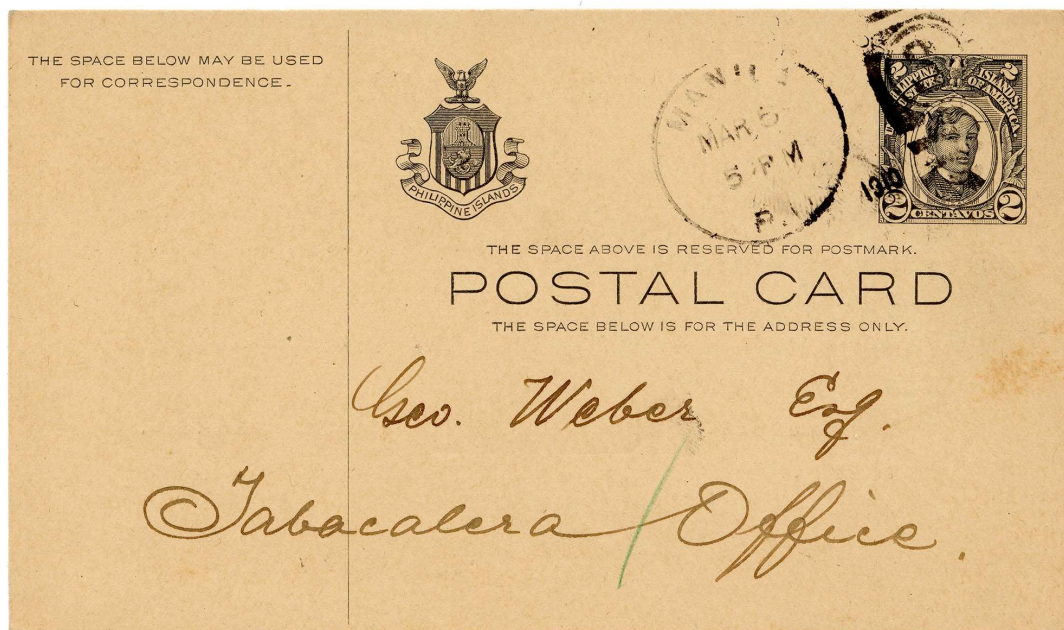 THE SPACE BELOW MAY BE USED
FOR CORRESPONDENCE.
PHILIPPINE ISLANDS
MANILA
MAR 6
5 PM
P.I.
1915
2 2
PHILIPPINE ISLANDS
UNITED STATES OF AMERICA
2 CENTAVOS 2
THE SPACE ABOVE IS RESERVED FOR POSTMARK.
POSTAL CARD
THE SPACE BELOW IS FOR THE ADDRESS ONLY.
Geo. Weber Esq.
Tabacalera Office.